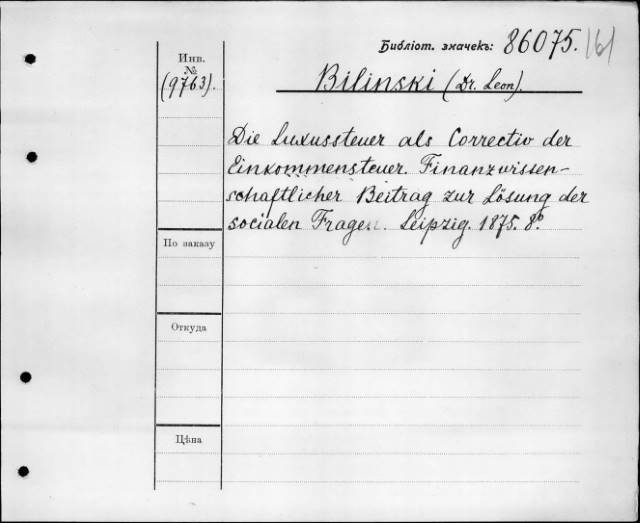 Библіот. значекъ: 86075. (6)
Инв.
№
(9763).
Bilinski (Dr. Leon).
Die Luxussteuer als Correctiv der
Einkommensteuer. Finanzwissen-
schaftlicher Beitrag zur Lösung der
socialen Frage. Leipzig. 1875. 8º.
По заказу
Откуда
Цѣна